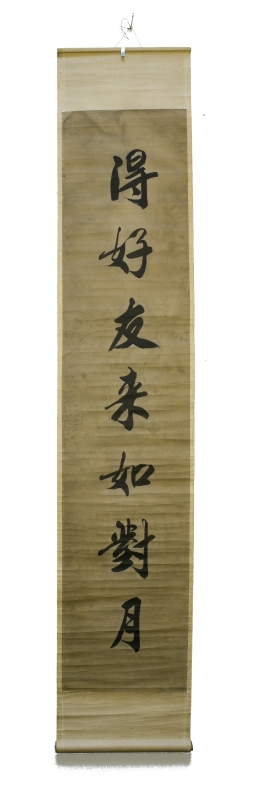 得好友来如對月